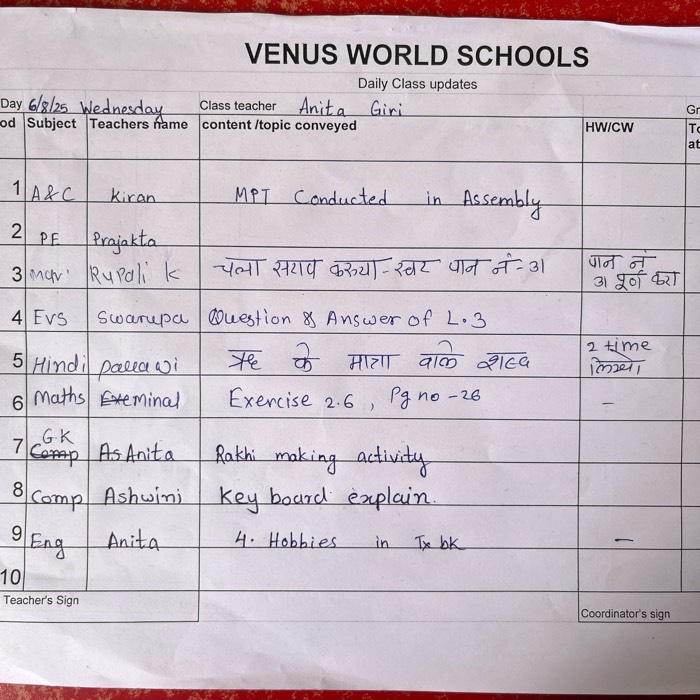 VENUS WORLD SCHOOLS
Daily Class updates
Day 6/8/25 Wednesday Class teacher Anita Giri Gr
od Subject Teachers name content /topic conveyed HW/CW
1 A&C Kiran MPT Conducted in Assembly
2 PE Prajakta
3 Mar. Rupali k चला सराव करूया - स्वर पान नं - 31 पान नं
31 पूर्ण करा
4 EVS Swarupa Question & Answer of L.3
5 Hindi pallawi ऋ के मात्रा वाले शब्द 2 time
लिखो।
6 Maths Minal Exercise 2.6 , Pg no - 26 -
7 G.K Comp Anita Rakhi making activity
8 Comp Ashwini Key board explain.
9 Eng Anita 4. Hobbies in Tx bk -
10
Teacher's Sign
Coordinator's sign